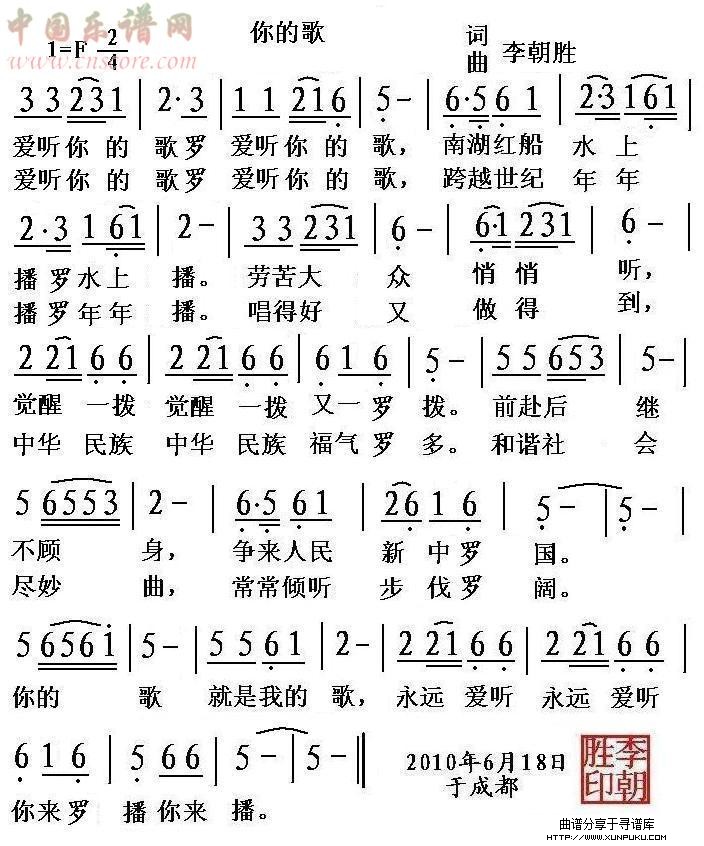 中国乐谱网
www.cnscore.com
1=F 2/4
你的歌
词
曲 李朝胜
3 3 2 3 1 | 2·3 | 1 1 2 1 6 | 5 - | 6·5 6 1 | 2·3 1 6 1 |
爱听你的 歌罗 爱听你的 歌，南湖红船 水上
爱听你的 歌罗 爱听你的 歌，跨越世纪 年年
2·3 1 6 1 | 2 - | 3 3 2 3 1 | 6 - | 6·1 2 3 1 | 6 - |
播罗水上 播。劳苦大 众 悄悄 听，
播罗年年 播。唱得好 又 做得 到，
2 2 1 6 6 | 2 2 1 6 6 | 6 1 6 | 5 - | 5 5 6 5 3 | 5 - |
觉醒 一拨 觉醒 一拨 又一罗 拨。前赴后 继
中华 民族 中华 民族 福气罗 多。和谐社 会
5 6 5 5 3 | 2 - | 6·5 6 1 | 2 6 1 6 | 5 - | 5 - |
不顾 身，争来人民 新中罗 国。
尽妙 曲，常常倾听 步伐罗 阔。
5 6 5 6 1 | 5 - | 5 5 6 1 | 2 - | 2 2 1 6 6 | 2 2 1 6 6 |
你的 歌 就是我的 歌，永远 爱听 永远 爱听
6 1 6 | 5 6 6 | 5 - | 5 - ‖
你来罗 播你来 播。
2010年6月18日
于成都
李朝胜印
曲谱分享于寻谱库
HTTP://WWW.XUNPUKU.COM